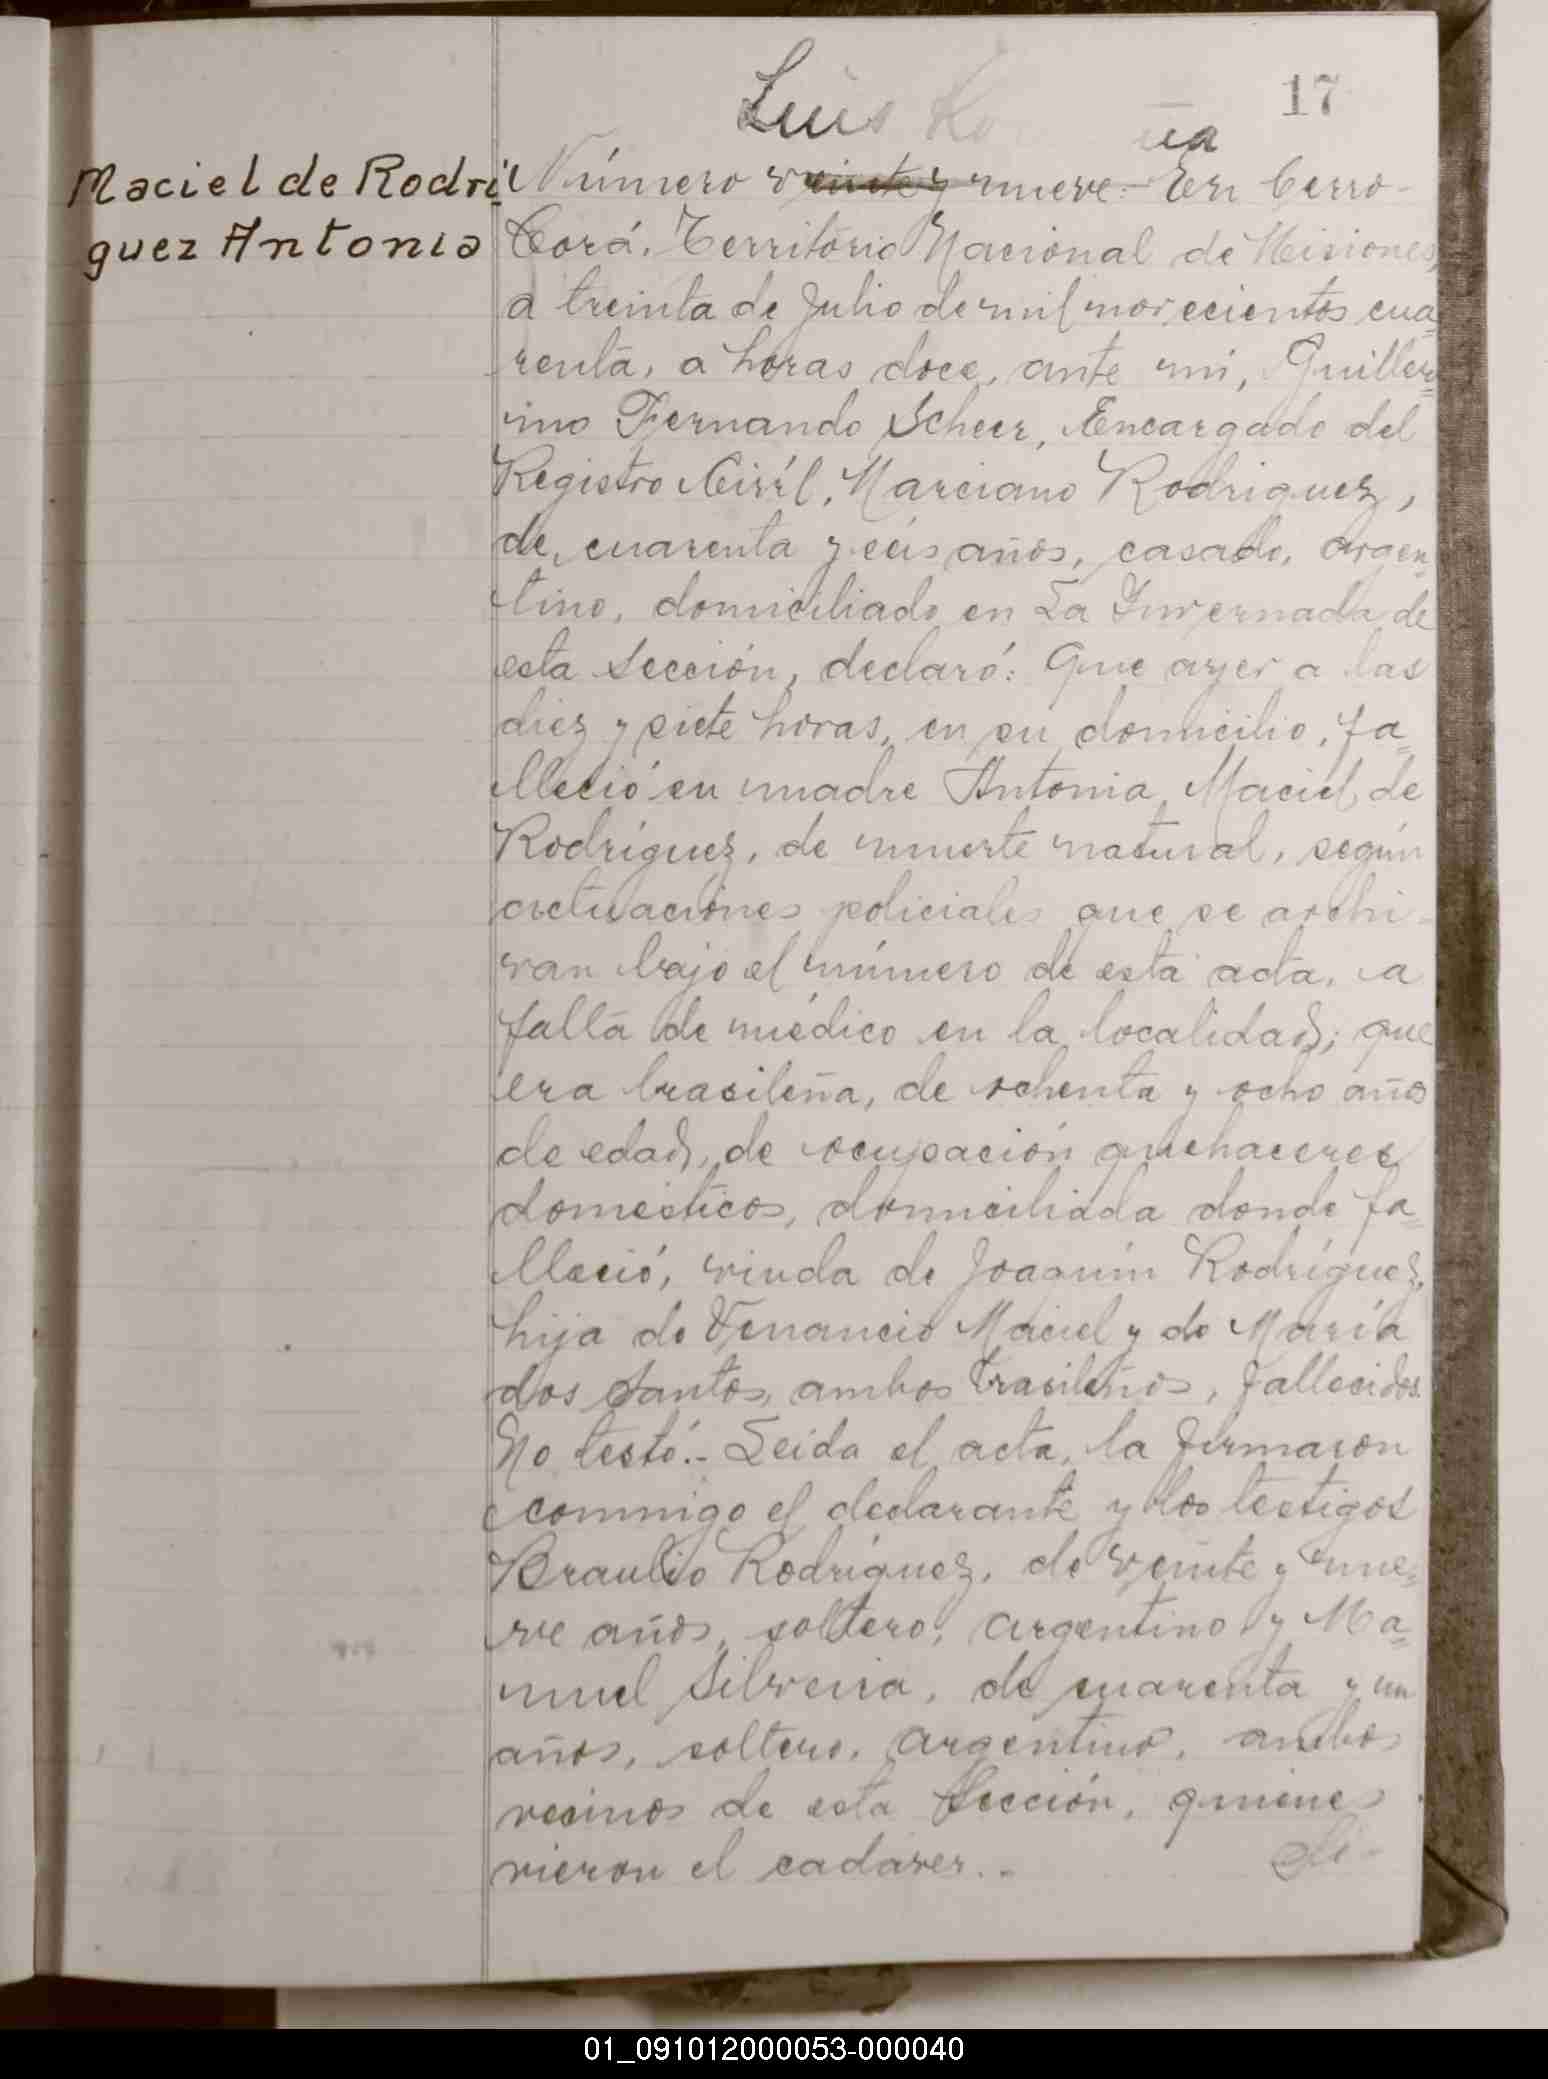 17
Luis
Maciel de Rodrí
guez Antonia
Número veinte y nueve:- En Cerro-
Corá, Territorio Nacional de Misiones,
a treinta de Julio de mil novecientos cua=
renta, a horas doce, ante mi, Guiller=
mo Fernando Scheer, Encargado del
Registro Civil, Marciano Rodriguez,
de cuarenta y seis años, casado, argen=
tino, domiciliado en La Invernada de
esta sección, declaró: Que ayer a las
diez y siete horas, en su domicilio, fa=
lleció su madre Antonia Maciel de
Rodríguez, de muerte natural, según
actuaciones policiales que se archi-
van bajo el número de esta acta, a
falta de médico en la localidad; que
era brasileña, de ochenta y ocho años
de edad, de ocupación quehaceres
domésticos, domiciliada donde fa=
lleció, viuda de Joaquín Rodríguez,
hija de Venancio Maciel y de María
dos Santos, ambos brasileños, fallecidos.
No testó.- Leida el acta, la firmaron
conmigo el declarante y los testigos
Braulio Rodríguez, de veinte y nue=
ve años, soltero, argentino y Ma=
nuel Silveira, de cuarenta y un
años, soltero, argentino, ambos
vecinos de esta Sección, quienes
vieron el cadáver.-
01_091012000053-000040